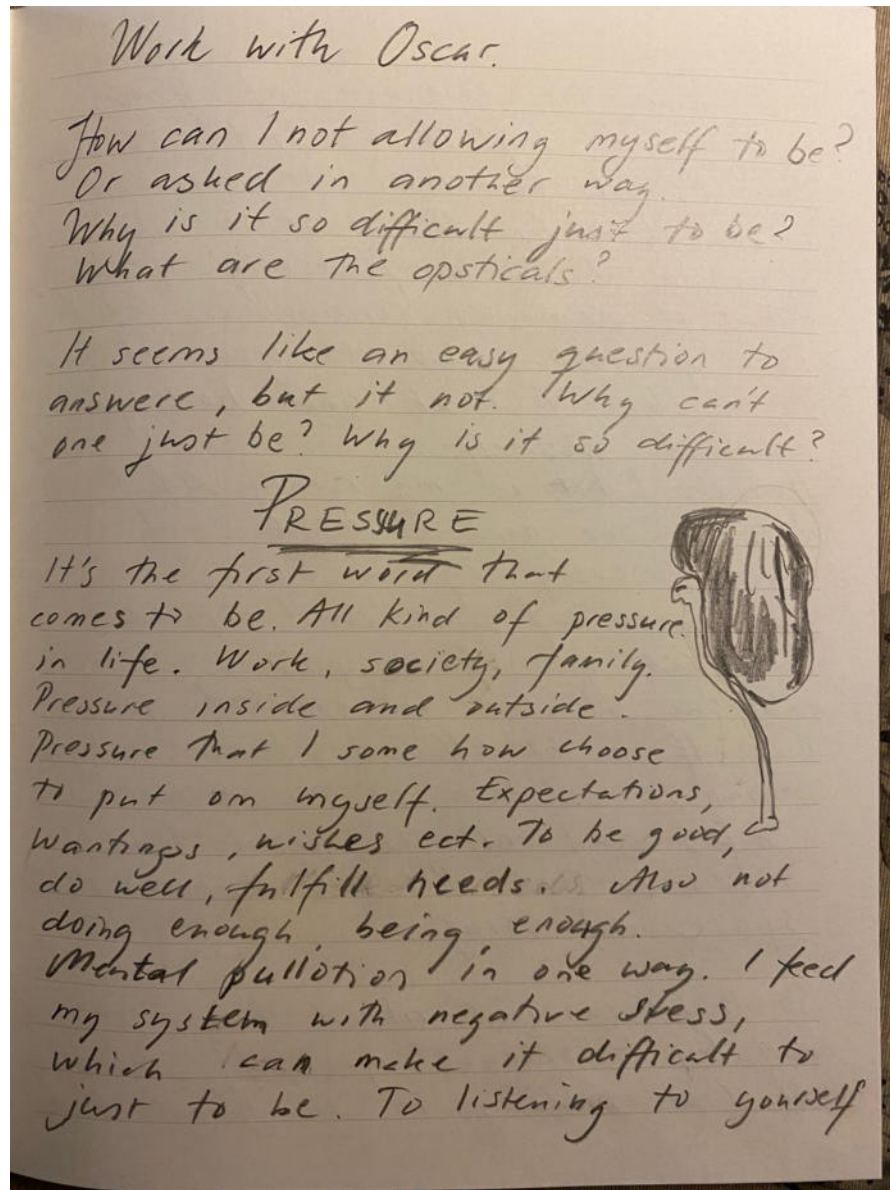 Work with Oscar.
How can I not allowing myself to be?
Or asked in another way.
Why is it so difficult just to be?
What are the opsticals?
It seems like an easy question to
answere, but it not. Why can't
one just be? Why is it so difficult?
PRESSURE
It's the first word that
comes to be. All kind of pressure
in life. Work, society, family.
Pressure inside and outside.
Pressure that I some how choose
to put on myself. Expectations,
wantings, wishes ect. To be good,
do well, fulfill needs. Also not
doing enough, being enough.
Mental pullotion in one way. I feed
my system with negative stress,
which can make it difficult to
just to be. To listening to yourself